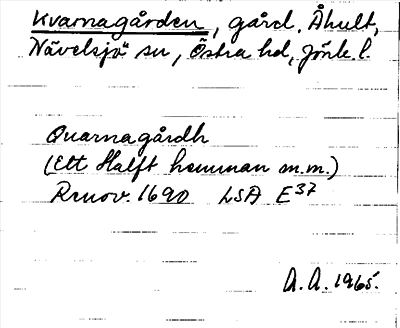 Kvarnagården, gård. Åhult,
Nävelsjö sn, Östra hd, Jönk. l.
Quarnagårdh
(Ett Halft hemman m.m.)
Renov. 1690 LSA E37
A. A. 1965.